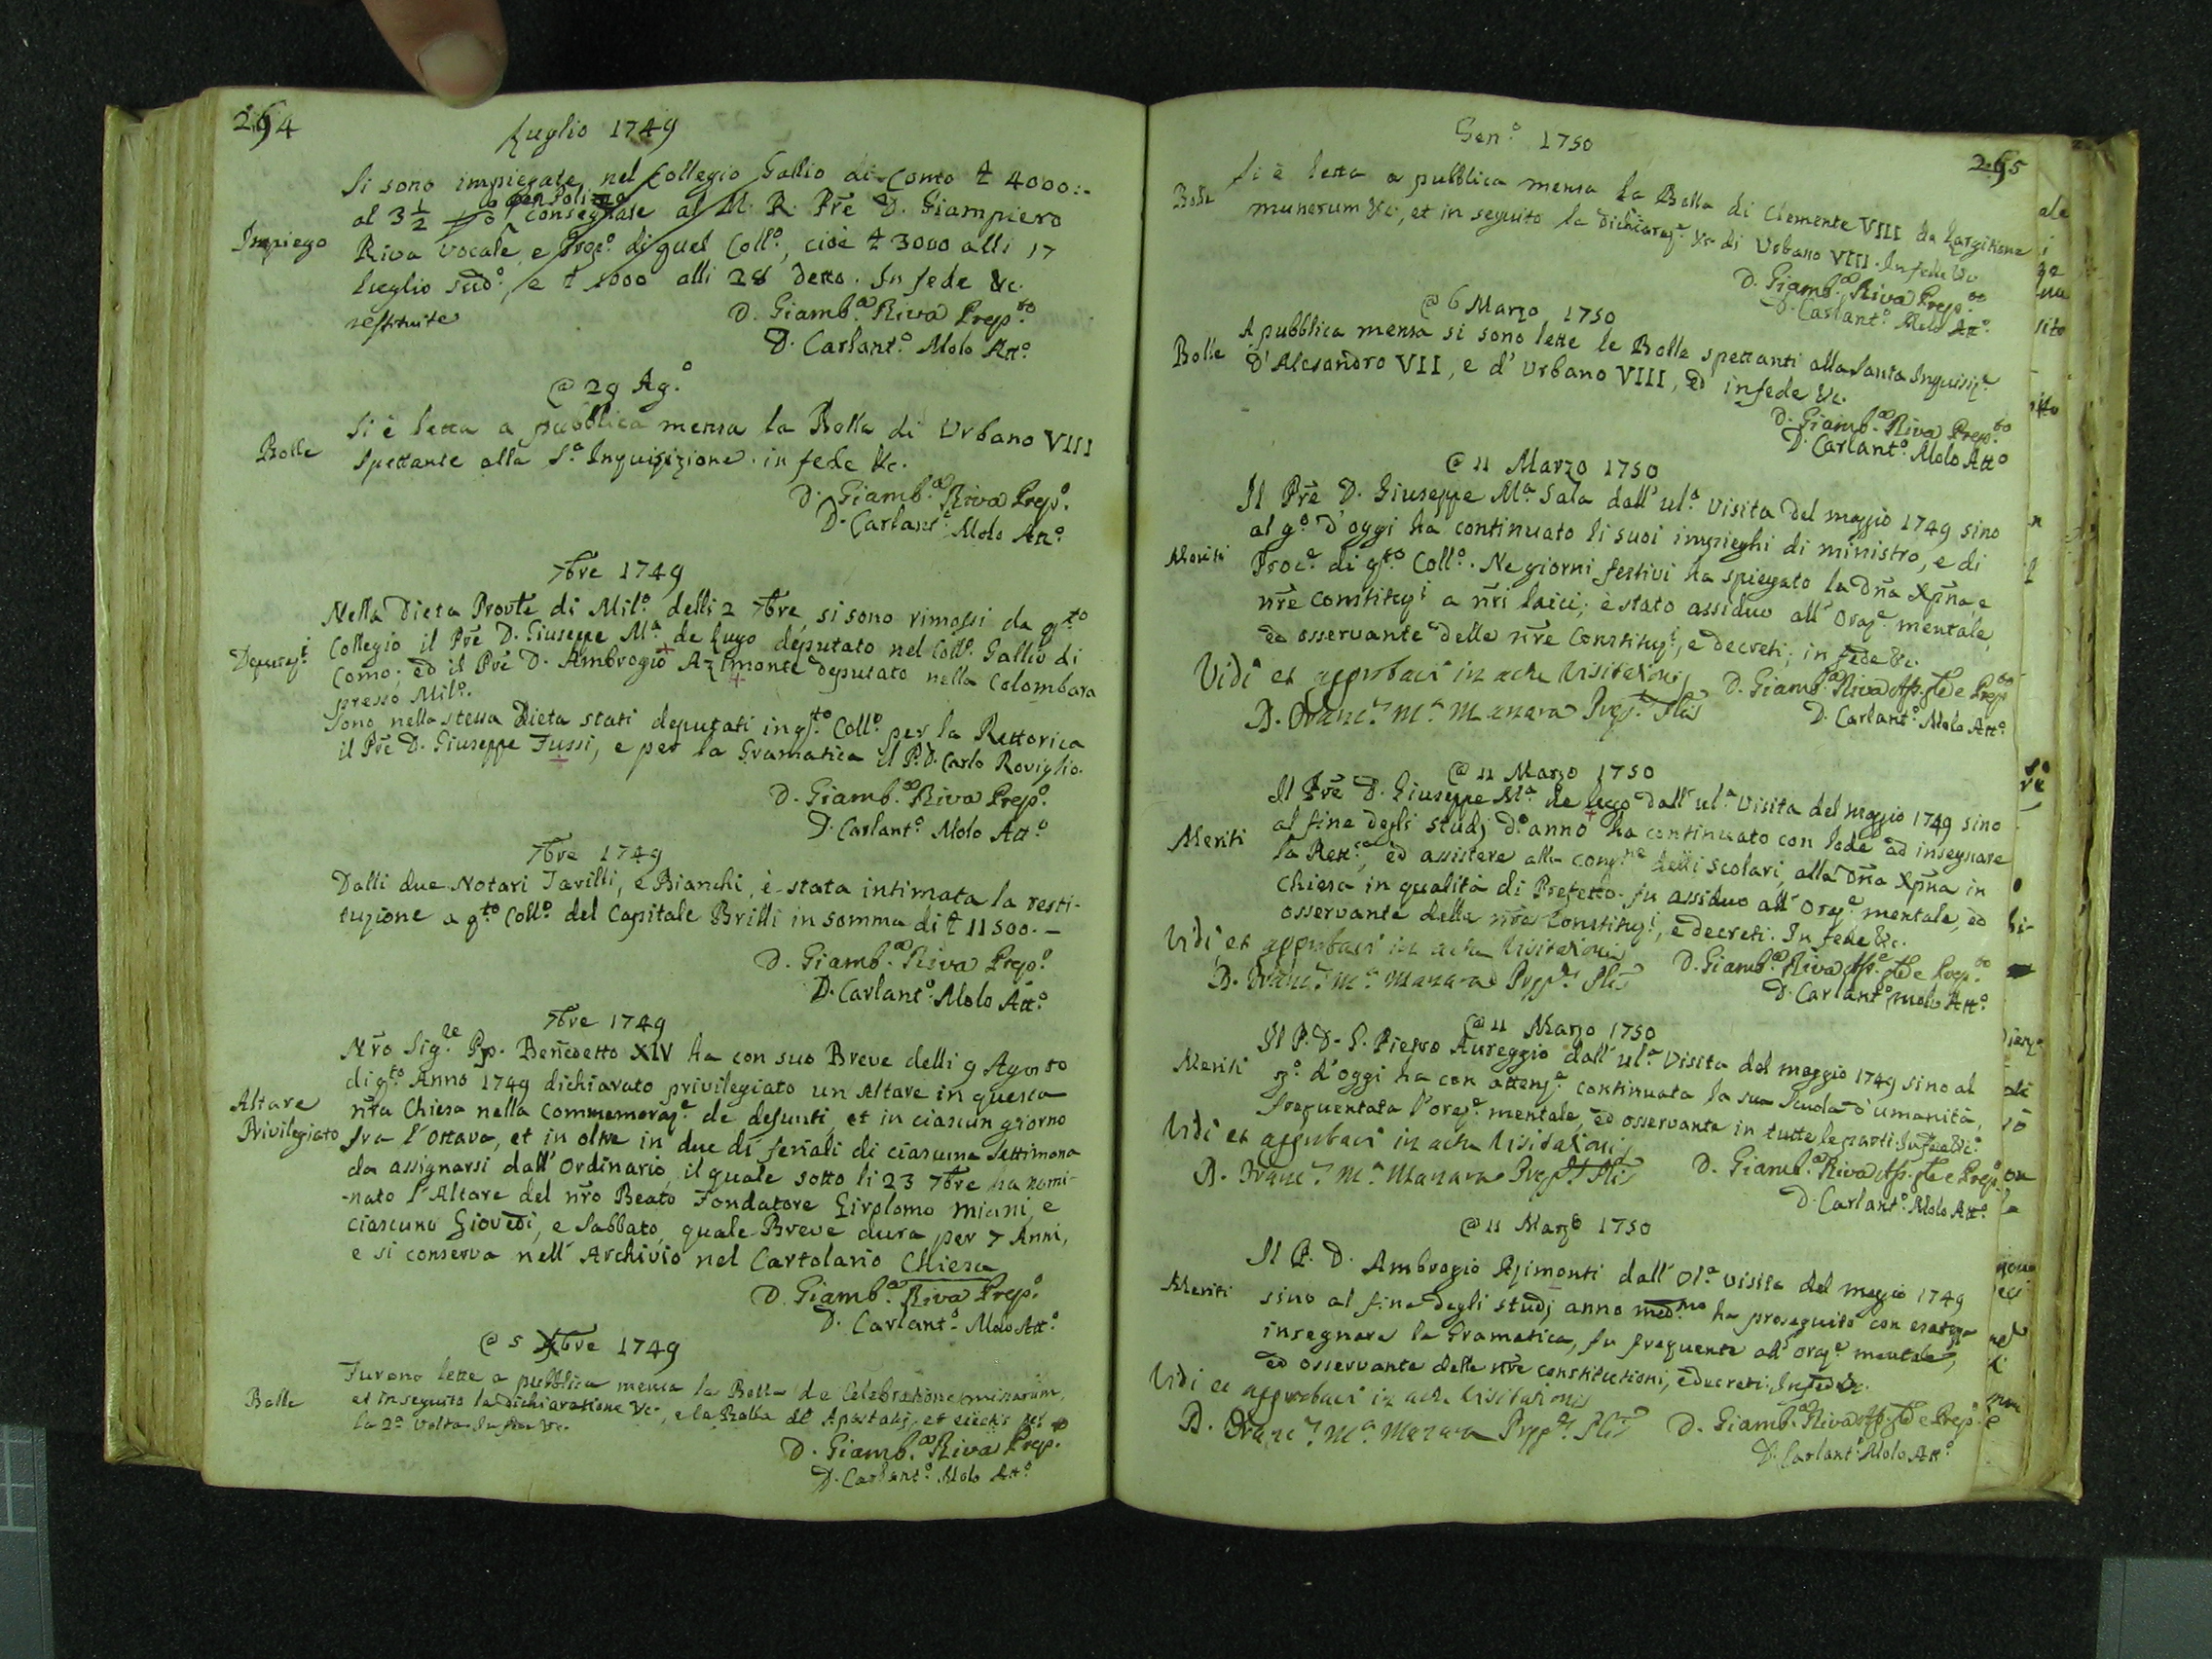 264
Luglio 1749
Si sono impiegate nel Collegio Gallio di Como ₤ 4000:-
al 3 1/2 consegnate al M. R. Prē D. Giampiero
Impiego
Riva Vocale, e Proc.º di quel Coll.º, cioè ₤ 3000 alli 17
Luglio sud.º, e ₤ 1000 alli 28 detto. In fede &c.
restituite
D. Giamb.ª Riva Prep.to
D. Carlant.º Molo Att.º
@ 29 Ag.º
Bolle
Si è letta a pubblica mensa la Bolla di Urbano VIII
spettante alla S.ª Inquisizione. in fede &c.
D. Giamb.ª Riva Prep.º
D. Carlant.º Molo Att.º
7bre 1749
Nella Dieta Provle di Mil.º delli 2 7bre, si sono rimossi da q.to
Deputaz.i
Collegio il Prē D. Giuseppe M.ª de Lugo deputato nel Coll.º Gallio di
Como; ed il Prē D. Ambrogio Azimonte deputato nella Colombara
presso Mil.º.
Sono nella stessa Dieta stati deputati in q.to Coll.º per la Rettorica
il Prē D. Giuseppe Fussi, e per la Gramatica il P. D. Carlo Roviglio.
D. Giamb.ª Riva Prep.º
D. Carlant.º Molo Att.º
7bre 1749
Dalli due Notari Tavilli, e Bianchi, è stata intimata la resti-
tuzione a q.to Coll.º del Capitale Brilli in somma di ₤ 11500.-
D. Giamb.ª Riva Prep.º
D. Carlant.º Molo Att.º
7bre 1749
Nr̄o Sig.re Pp. Benedetto XIV ha con suo Breve delli 9 Agosto
di q.to Anno 1749 dichiarato privilegiato un Altare in questa
Altare
Privilegiato
nr̄a Chiesa nella Commemoraz.e de defunti, et in ciascun giorno
fra l'Ottava, et in oltre in due dì feriali di ciascuna Settimana
da assignarsi dall'Ordinario, il quale sotto li 23 7bre ha nomi-
-nato l'Altare del nr̄o Beato Fondatore Girolomo Miani, e
ciascuno Giovedì, e Sabbato, quale Breve dura per 7 Anni,
e si conserva nell'Archivio nel Cartolario Chiesa
D. Giamb.ª Riva Prep.º
D. Carlant.º Molo Att.º
@ 5 Xbre 1749
Bolle
Furono lette a pubblica mensa la Bolla de Celebratione missarum,
et in seguito la dichiaratione &c., e la Bolla de Apostatis, et eiectis per
la 2ª volta. In fede &c.
D. Giamb.ª Riva Prep.º
D. Carlant.º Molo Att.º
265
Gen.º 1750
Bolle
Si è letta a pubblica mensa la Bolla di Clemente VIII de largitione
munerum &c., et in seguito la dichiaraz.e &c. di Urbano VIII. In fede &c.
D. Giamb.ª Riva Prep.to
D. Carlant.º Molo Att.º
@ 6 Marzo 1750
Bolle
A pubblica mensa si sono lette le Bolle spettanti alla Santa Inquisiz.e
D'Alesandro VII, e d'Urbano VIII, ed in fede &c.
D. Giamb.ª Riva Prep.to
D. Carlant.º Molo Att.º
@ 11 Marzo 1750
Il Prē D. Giuseppe M.ª Sala dall'ul.ª Visita del maggio 1749 sino
al g.º d'oggi ha continuato li suoi impieghi di ministro, e di
Meriti
Proc.e di q.to Coll.º. Ne giorni festivi ha spiegato la Dn̄a Xp̄na e
nr̄e Constituz.i a nr̄i laici; è stato assiduo all'Oraz.e mentale,
ed osservante delle nr̄e Constituz.i, e decreti; in fede &c.
Vidi et approbavi in actu Visitationis
D. Giamb.ª Riva Ass.te e Prep.to
D. Franc.s M.ª Manara Prep.s Plis
D. Carlant.º Molo Att.º
@ 11 Marzo 1750
Il Prē D. Giuseppe M.ª de Lugo dall'ul.ª Visita del maggio 1749 sino
Meriti
al fine degli studj d.º anno ha continuato con lode ad insegnare
la Rett.ca, ed assistere alla Cong.ne delli Scolari, alla Dn̄a Xp̄na in
Chiesa in qualità di Prefetto. fu assiduo all'Oraz.e mentale, ed
osservante delle nr̄e Constituz.i, e decreti. In fede &c.
Vidi et approbavi in actu Visitationis
D. Giamb.ª Riva Ass.te e Prep.to
D. Franc.s M.ª Manara Prep.s Plis
D. Carlant.º Molo Att.º
@ 11 Marzo 1750
Meriti
Il P. D. G. Pietro Aureggio dall'ul.ª Visita del maggio 1749 sino al
g.º d'oggi ha con attenz.e continuata la sua Scuola d'umanità,
frequentata l'oraz.e mentale, ed osservante in tutte le parti. In fede &c.
Vidi et approbavi in actu Visitationis
D. Giamb.ª Riva Ass.te e Prep.º
D. Franc.s M.ª Manara Prep.s Plis
D. Carlant.º Molo Att.º
@ 11 Marzo 1750
Meriti
Il P. D. Ambrogio Azimonti dall'Ol.ª visita del maggio 1749
sino al fine degli studj anno med.mo ha proseguito con esatezza
insegnare la Gramatica, fu frequente all'oraz.e mentale,
ed osservante delle nr̄e constitutioni, e decreti. In fede &c.
Vidi et approbavi in actu Visitationis
D. Giamb.ª Riva Ass.te e Prep.º
D. Franc.s M.ª Manara Prep.s Plis
D. Carlant.º Molo Att.º